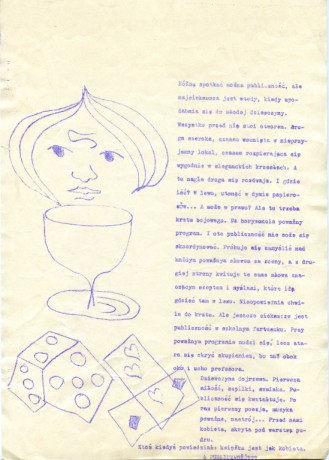 Różną spotkać można publiczność, ale
najciekawsza jest wtedy, kiedy upo-
dabnia się do młodej dziewczyny.
Wszystko przed nią stoi otworem. Dro-
ga szeroka, czasem wciśnięta w nieprzy-
jemny lokal, czasem rozpierająca się
wygodnie w eleganckich krzesłach. A
tu nagle droga się rozdwaja. I gdzie
iść? W lewo, utonąć w dymie papiero-
sów... A może w prawo? Ale tu trzeba
hartu bojowego. Na horyzoncie poważny
program. I oto publiczność nie może się
skoordynować. Próbuje się zamyślić nad
każdym poważnym słowem ze sceny, a z dru-
giej strony kwituje to samo słowo zna-
czącym szeptem i myślami, które idą
gdzieś tam w lewo. Niezpowiednia chwi-
la do hartu. Ale jeszcze ciekawsza jest
publiczność w szkolnym fartuszku. Przy
poważnym programie nudzi się, lecz sta-
ra się skryć skupieniem, bo tuż obok
oko i ucho profesora.
Dziewczyna dojrzewa. Pierwsza
miłość, szpilki, szminka. Pu-
bliczność się kształtuje. Po
raz pierwszy poezja, muzyka
poważna, nastrój... Przed nami
kobieta, skryta pod warstwą pu-
dru.
Ktoś kiedyś powiedział: książka jest jak kobieta.
A PUBLICZNOŚĆ???
B
B
B